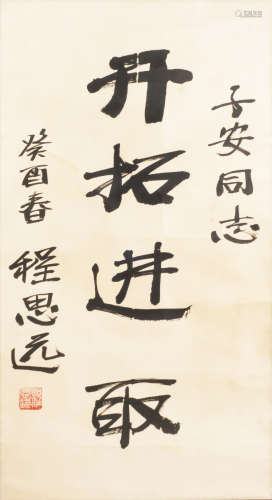 子安同志
开拓进取
癸酉春
程思远